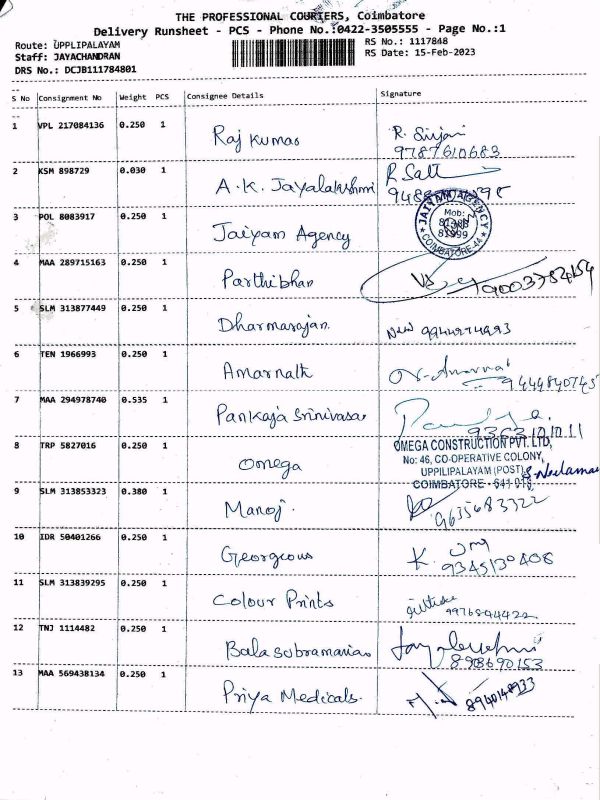 THE PROFESSIONAL COURIERS, Coimbatore
Delivery Runsheet - PCS - Phone No.:0422-3505555 - Page No.:1
Route: UPPLIPALAYAM RS No.: 1117848
Staff: JAYACHANDRAN RS Date: 15-Feb-2023
DRS No.: DCJB111784801
S No Consignment No Weight PCS Consignee Details Signature
1 VPL 217084136 0.250 1 Raj Kumar R.
9787610683
2 KSM 898729 0.030 1 A.K. Jayalakshmi
3 POL 8083917 0.250 1 Jaiyam Agency JAIYAM AGENCY Mob: COIMBATORE-44
4 MAA 289715163 0.250 1 Parthibhan
5 SLM 313877449 0.250 1 Dharmarajan.
6 TEN 1966993 0.250 1 Amarnath
9444840745
7 MAA 294978740 0.535 1 Pankaja Srinivasa
9363101011
8 TRP 5827016 0.250 1 Omega OMEGA CONSTRUCTION PVT. LTD,
No: 46, CO-OPERATIVE COLONY,
UPPILIPALAYAM (POST)
COIMBATORE - 641 015
9 SLM 313853323 0.380 1 Manoj
9635683322
10 IDR 50401266 0.250 1 Georgeous K.
9345130408
11 SLM 313839295 0.250 1 Colour Prints
9976844422
12 TNJ 1114482 0.250 1 Balasubramanian
898690153
13 MAA 569438134 0.250 1 Priya Medicals. 8940148933